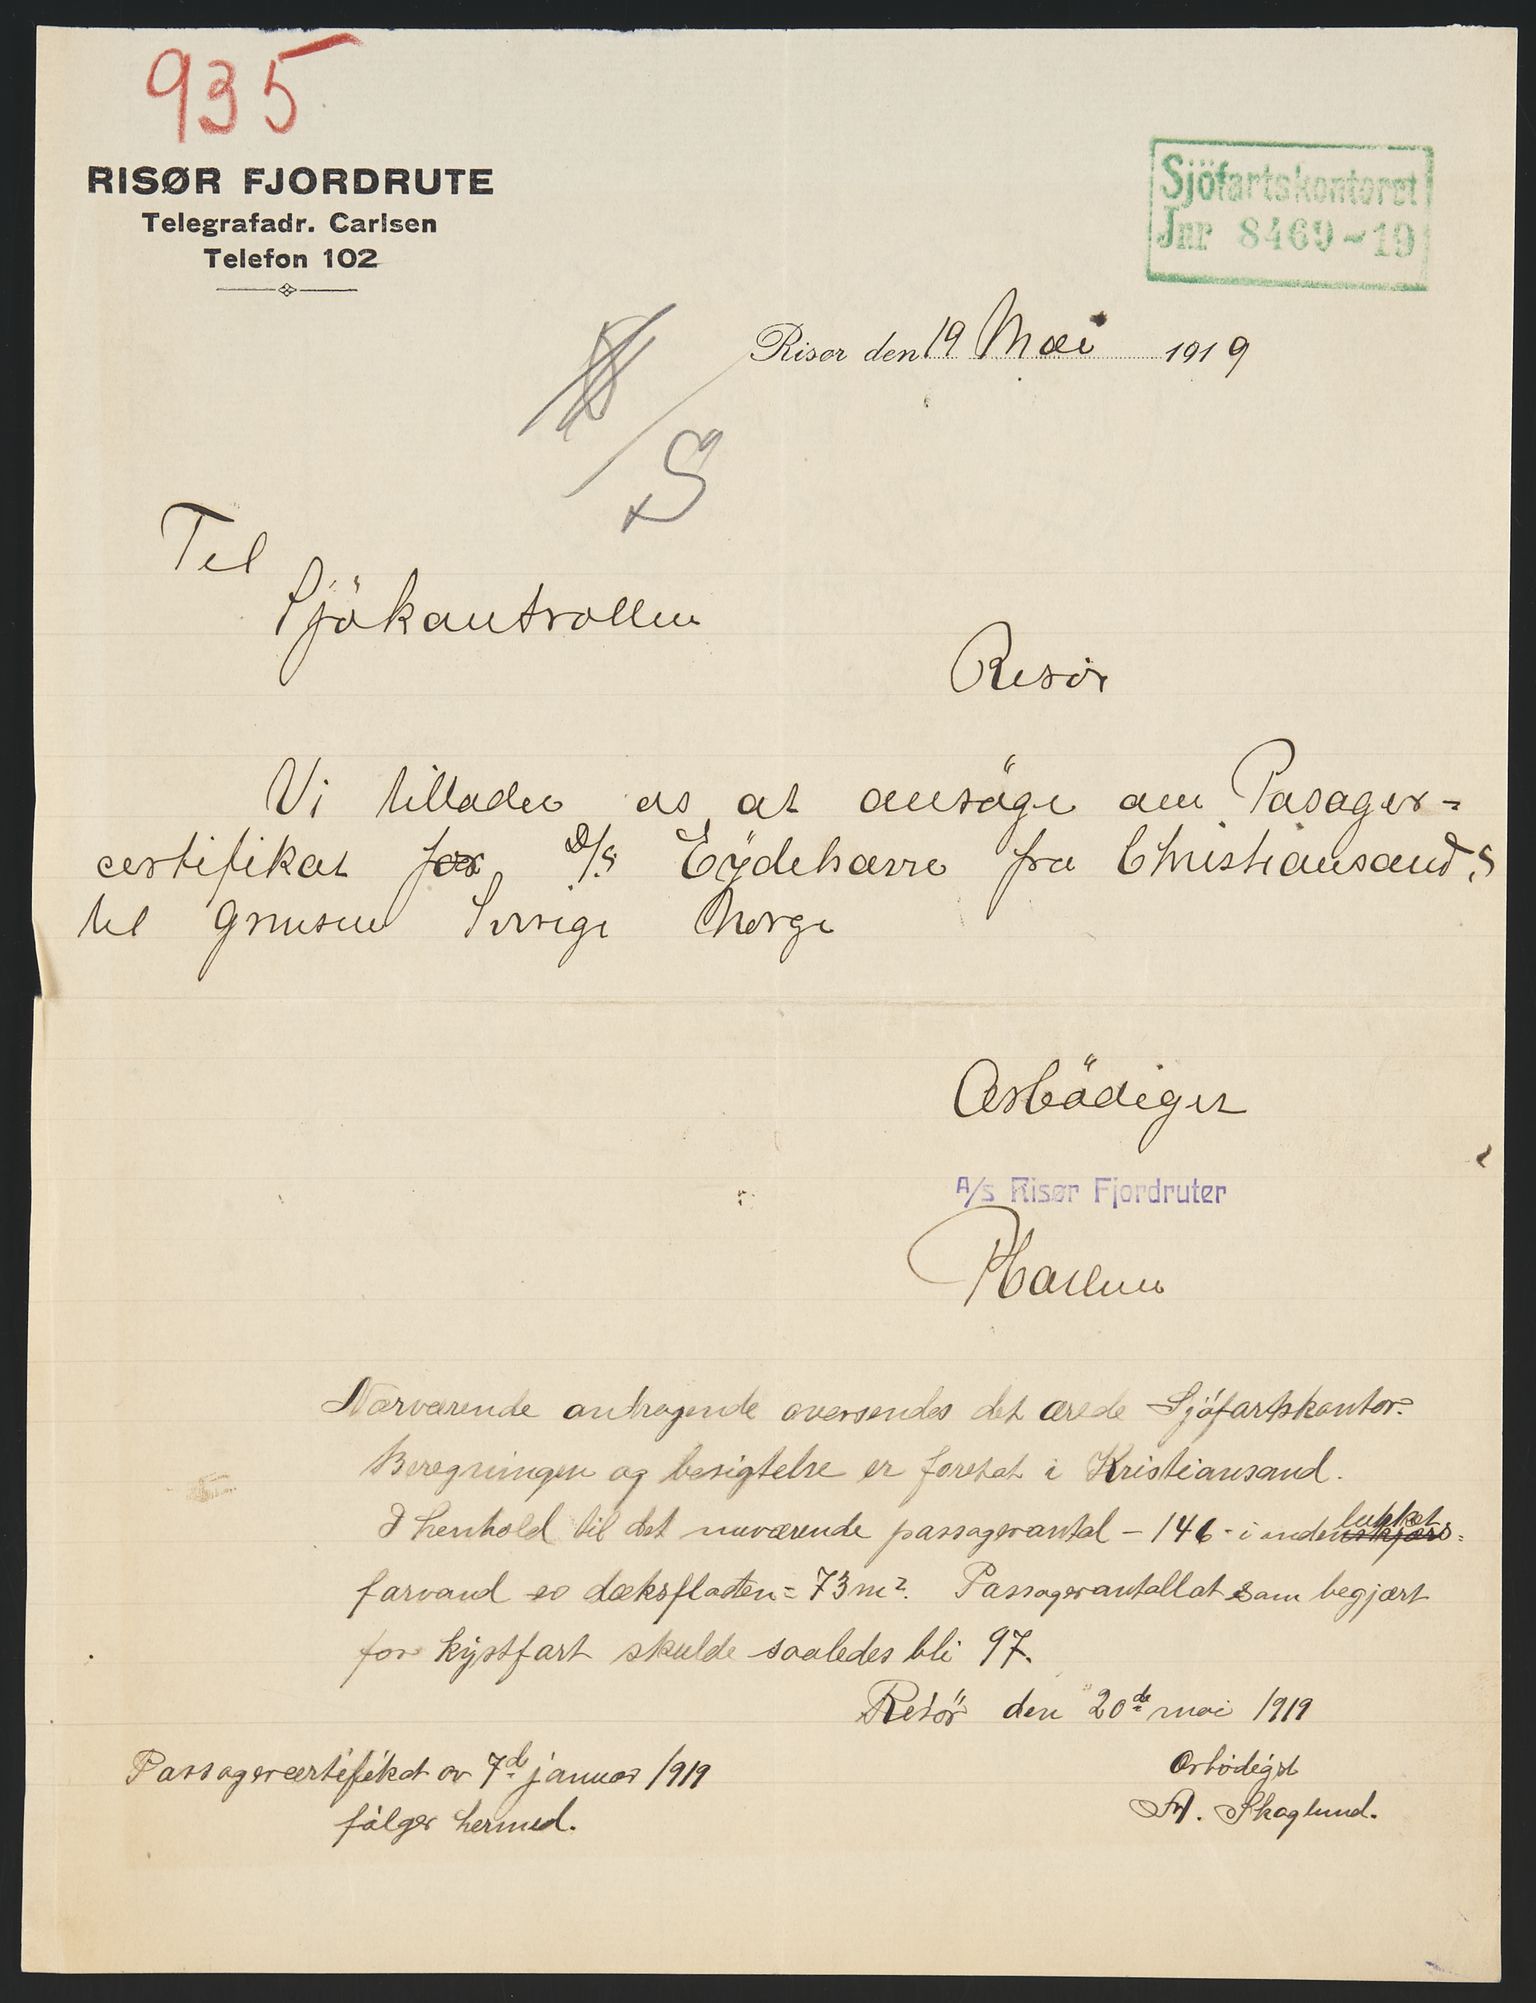 935
RISØR FJORDRUTE
Telegrafadr. Carlsen
Telefon 102
Sjöfartskontoret
Jnr 8469-19
Risør den 19 Mai 1919
S
Til
Sjökontrollen
Risör
Vi tillader os at ansöge om Pasager=
certifikat for D/S Eydehavn fra Christiansand S
til Grensen Sverige Norge
Ærbödigst
A/s Risør Fjordruter
Nærværende andragende oversendes det ærede Sjöfartskontor.
Beregningen og besigtelse er foretat i Kristiansand.
I henhold til det nuværende passagerantal - 146 - i indenskjærs= lukket
farvand er dæksflaten = 73 m². Passagerantallat som begjært
for kystfart skulde saaledes bli 97.
Risör den 20de mai 1919
Passagercertifikat av 7d januar 1919
fölger hermed.
Ærbödigst
Skoglund.